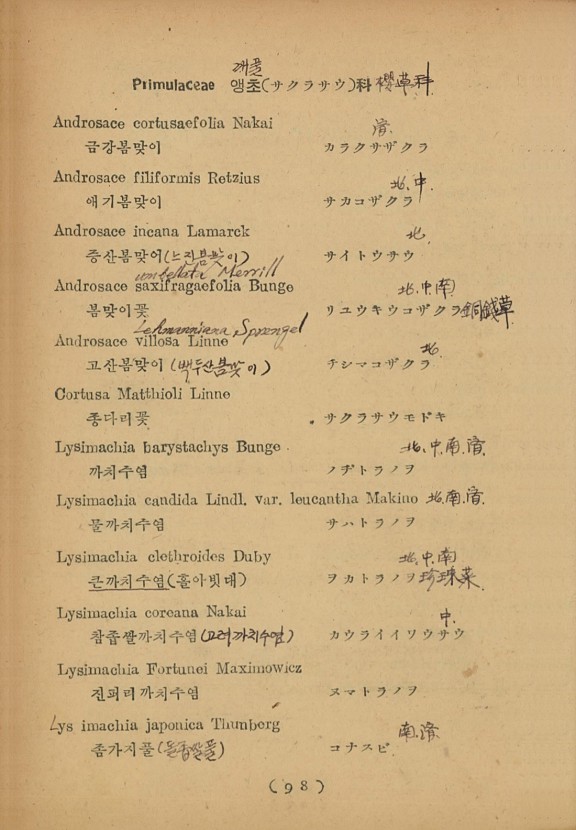 깨풀
Primulaceae 앵초(サクラサウ)科 櫻草科
Androsace cortusaefolia Nakai 濟.
금강봄맞이 カラクサザクラ
Androsace filiformis Retzius 北, 中.
애기봄맞이 サカコザクラ
Androsace incana Lamarck 北.
증산봄맞어(느진봄맞이) サイトウサウ
umbellata Merrill
Androsace saxifragaefolia Bunge 北, 中, 南
봄맞이꽃 リユウキウコザクラ 銅錢草
Lehmanniana Sprengel
Androsace villosa Linne 北.
고산봄맞이 (백두산봄맞이) チシマコザクラ
Cortusa Matthioli Linne
종다리꽃 サクラサウモドキ
Lysimachia barystachys Bunge 北, 中, 南, 濟.
까치수염 ノヂトラノヲ
Lysimachia candida Lindl. var. leucantha Makino 北, 南, 濟.
물까치수염 サハトラノヲ
Lysimachia clethroides Duby 北, 中, 南
큰까치수염(홀아빗대) ヲカトラノヲ 珍珠菜
Lysimachia coreana Nakai 中.
참좁쌀까치수염(고려까치수염) カウライイソウサウ
Lysimachia Fortunei Maximowicz
진퍼리까치수염 ヌマトラノヲ
Lys imachia japonica Thunberg 南, 濟.
좀가지풀(돌좁쌀풀) コナスビ
(98)